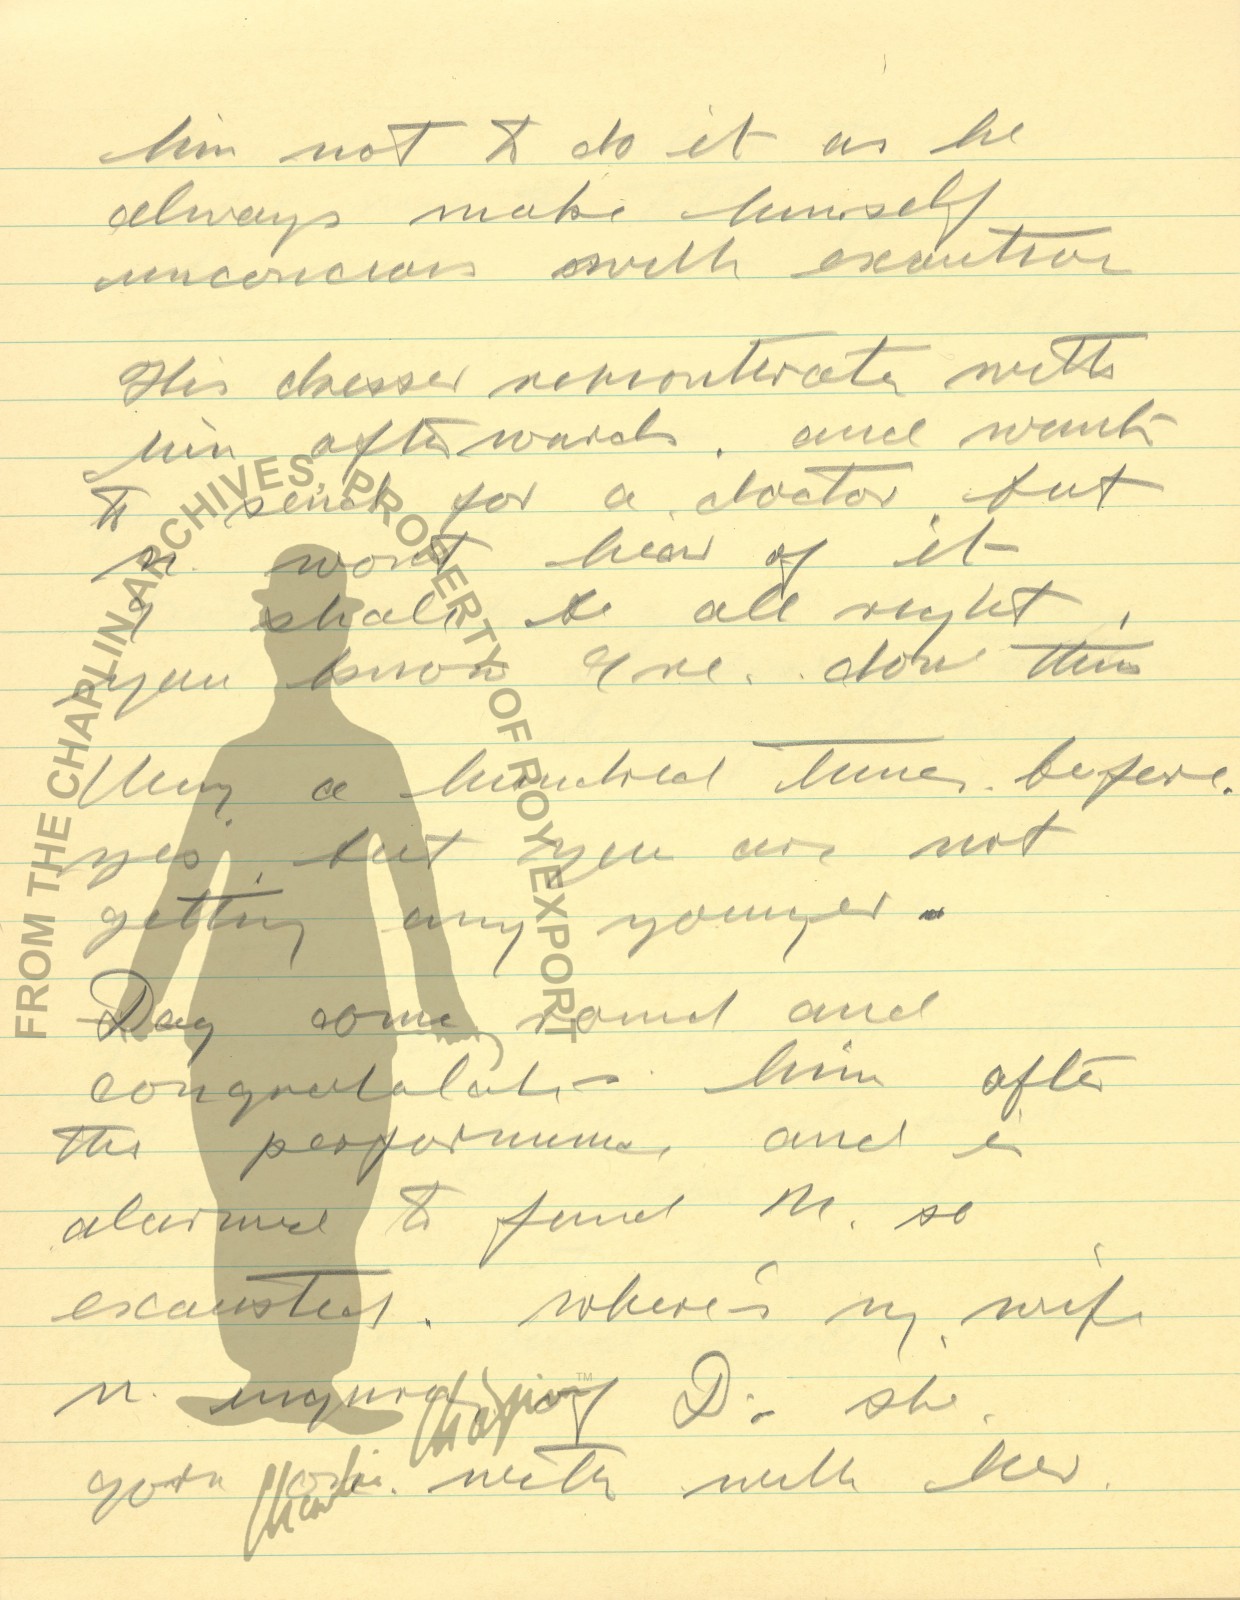 him not to do it as he
always make himself
unconcious with exaution
His dresser remonstrate with
him afterwards. and wants
to send for a doctor, but
N. wont hear of it
I shall be all right,
you know I've done this
thing a hundred times before.
yes, but you are not
getting any younger.
Dag come round and
congratulate him after
the performance, and is
alarmed to find N. so
exausted. where's my wife
N. inquires of D: she
gone with her.
FROM THE CHAPLIN ARCHIVES, PROPERTY OF ROY EXPORT
Charlie Chaplin™